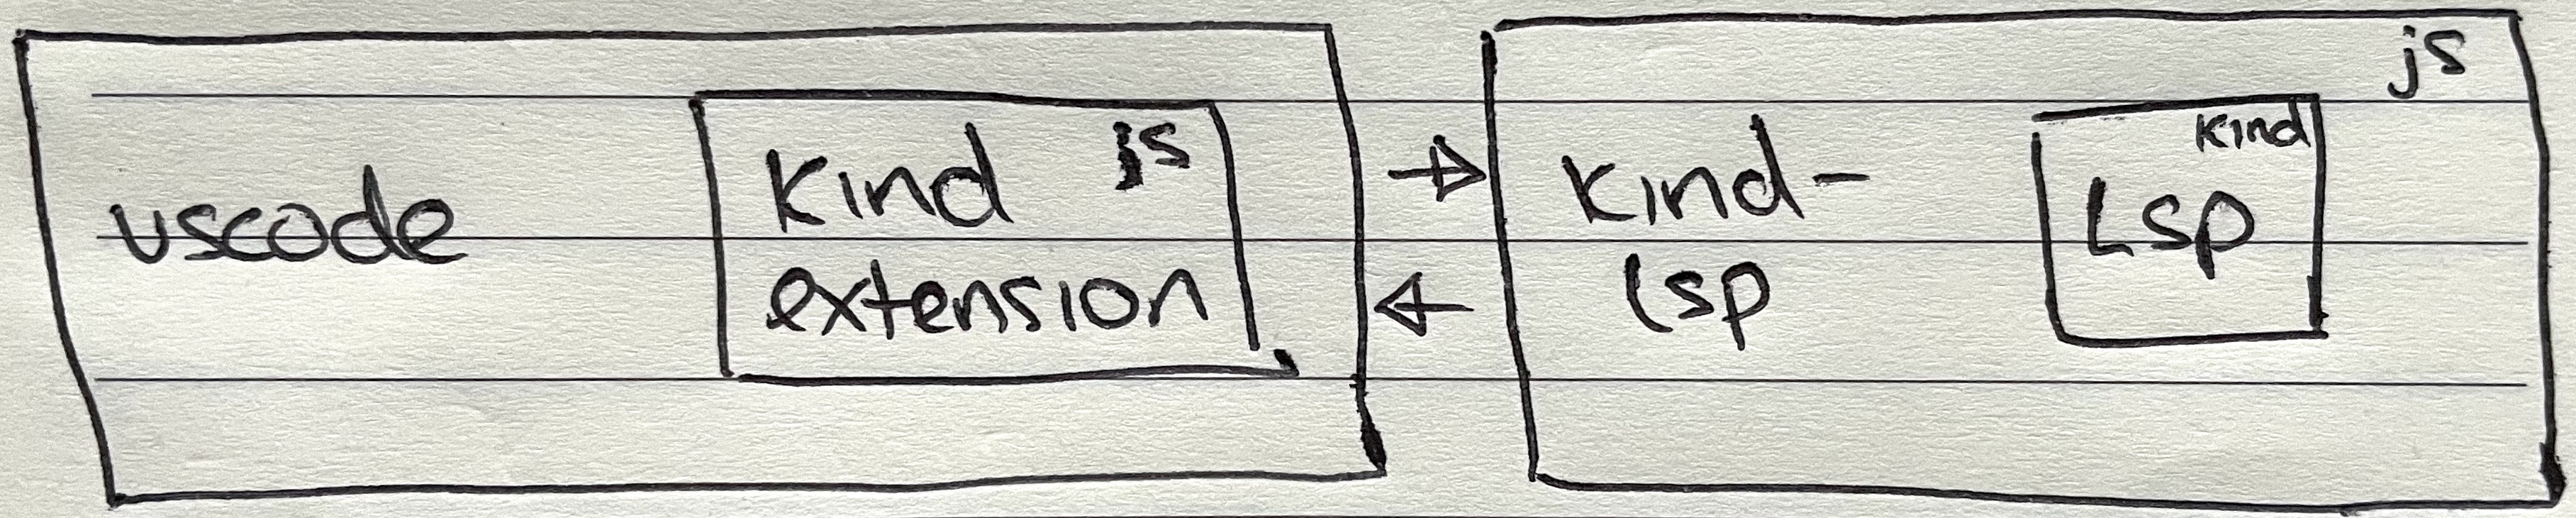 vscode
Kind js
extension
js
Kind-
lsp
Kind
Lsp